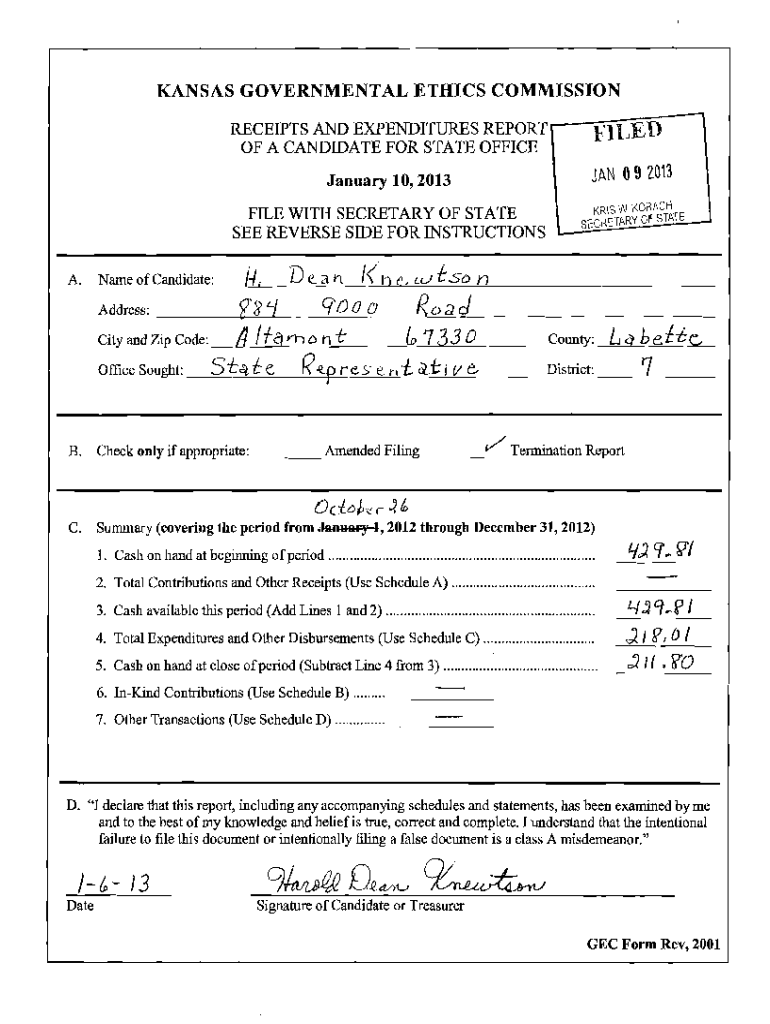 KANSAS GOVERNMENTAL ETHICS COMMISSION
RECEIPTS AND EXPENDITURES REPORT
OF A CANDIDATE FOR STATE OFFICE
January 10, 2013
FILE WITH SECRETARY OF STATE
SEE REVERSE SIDE FOR INSTRUCTIONS
FILED
JAN 09 2013
KRIS W KOBACH
SECRETARY OF STATE
A. Name of Candidate: H. Dean Knewtson
Address: 884 9000 Road
City and Zip Code: Altamont 67330 County: Labette
Office Sought: State Representative District: 7
B. Check only if appropriate: Amended Filing ✓ Termination Report
October 26
C. Summary (covering the period from January 1, 2012 through December 31, 2012)
1. Cash on hand at beginning of period 429.81
2. Total Contributions and Other Receipts (Use Schedule A) —
3. Cash available this period (Add Lines 1 and 2) 429.81
4. Total Expenditures and Other Disbursements (Use Schedule C) 218.01
5. Cash on hand at close of period (Subtract Line 4 from 3) 211.80
6. In-Kind Contributions (Use Schedule B) —
7. Other Transactions (Use Schedule D) —
D. “I declare that this report, including any accompanying schedules and statements, has been examined by me
and to the best of my knowledge and belief is true, correct and complete. I understand that the intentional
failure to file this document or intentionally filing a false document is a class A misdemeanor.”
1-6-13 Harold Dean Knewtson
Date Signature of Candidate or Treasurer
GEC Form Rev, 2001